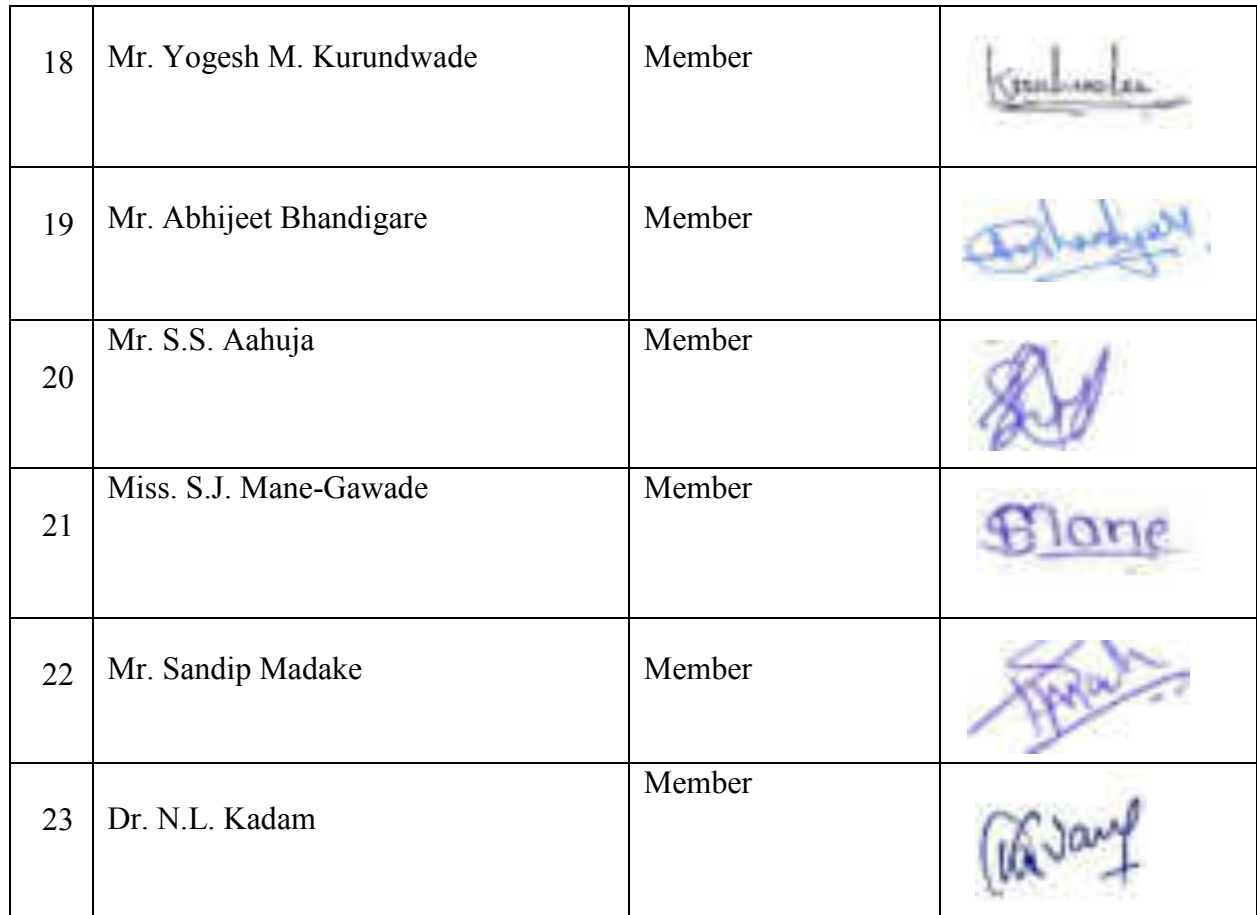 18 Mr. Yogesh M. Kurundwade Member
19 Mr. Abhijeet Bhandigare Member
Mr. S.S. Aahuja Member
20
Miss. S.J. Mane-Gawade Member
21 SMane
22 Mr. Sandip Madake Member
Member
23 Dr. N.L. Kadam